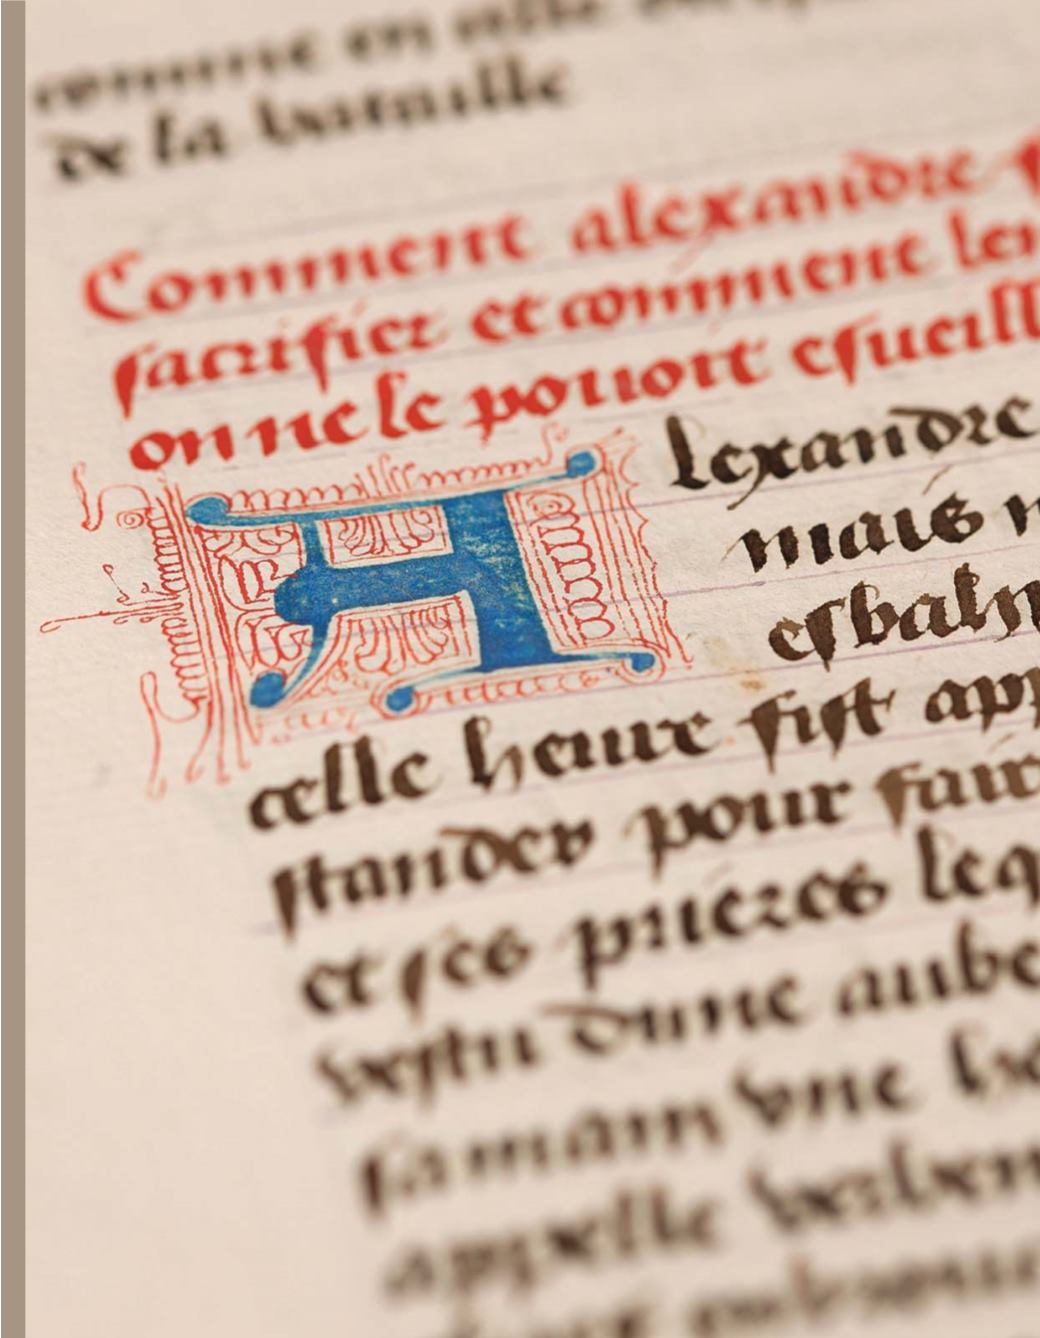 comme en mille
de la bataille
Comment alexandre f
sacrifier et comment len
on ne le pouoit esueill
Alexandre
mais n
esbahy
celle heure fist app
stander pour fair
et ses prieres leq
vestu dune aube
sa main vne
appelle verben